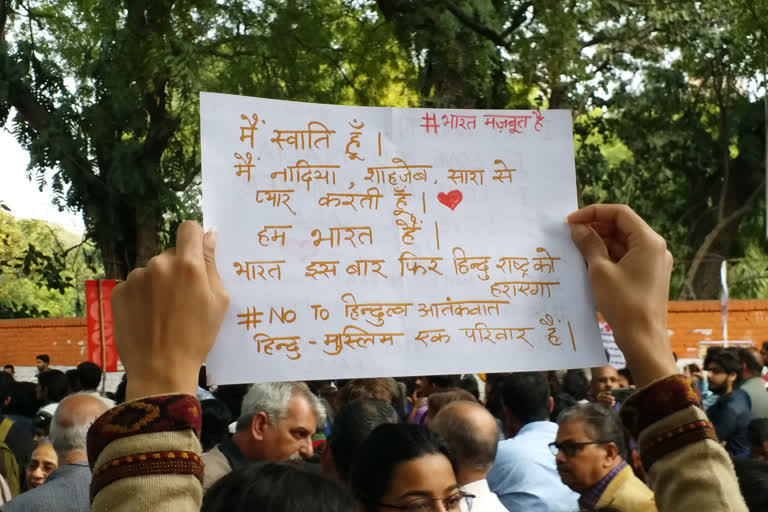 मैं स्वाति हूँ । #भारत मज़बूत है
मैं नादिया, शाहज़ेब, सारा से
प्यार करती हूँ ।
हम भारत हैं ।
भारत इस बार फिर हिन्दु राष्ट्र को
हराएगा
#NO TO हिन्दुत्व आतंकवात
हिन्दु - मुस्लिम एक परिवार हैं ।